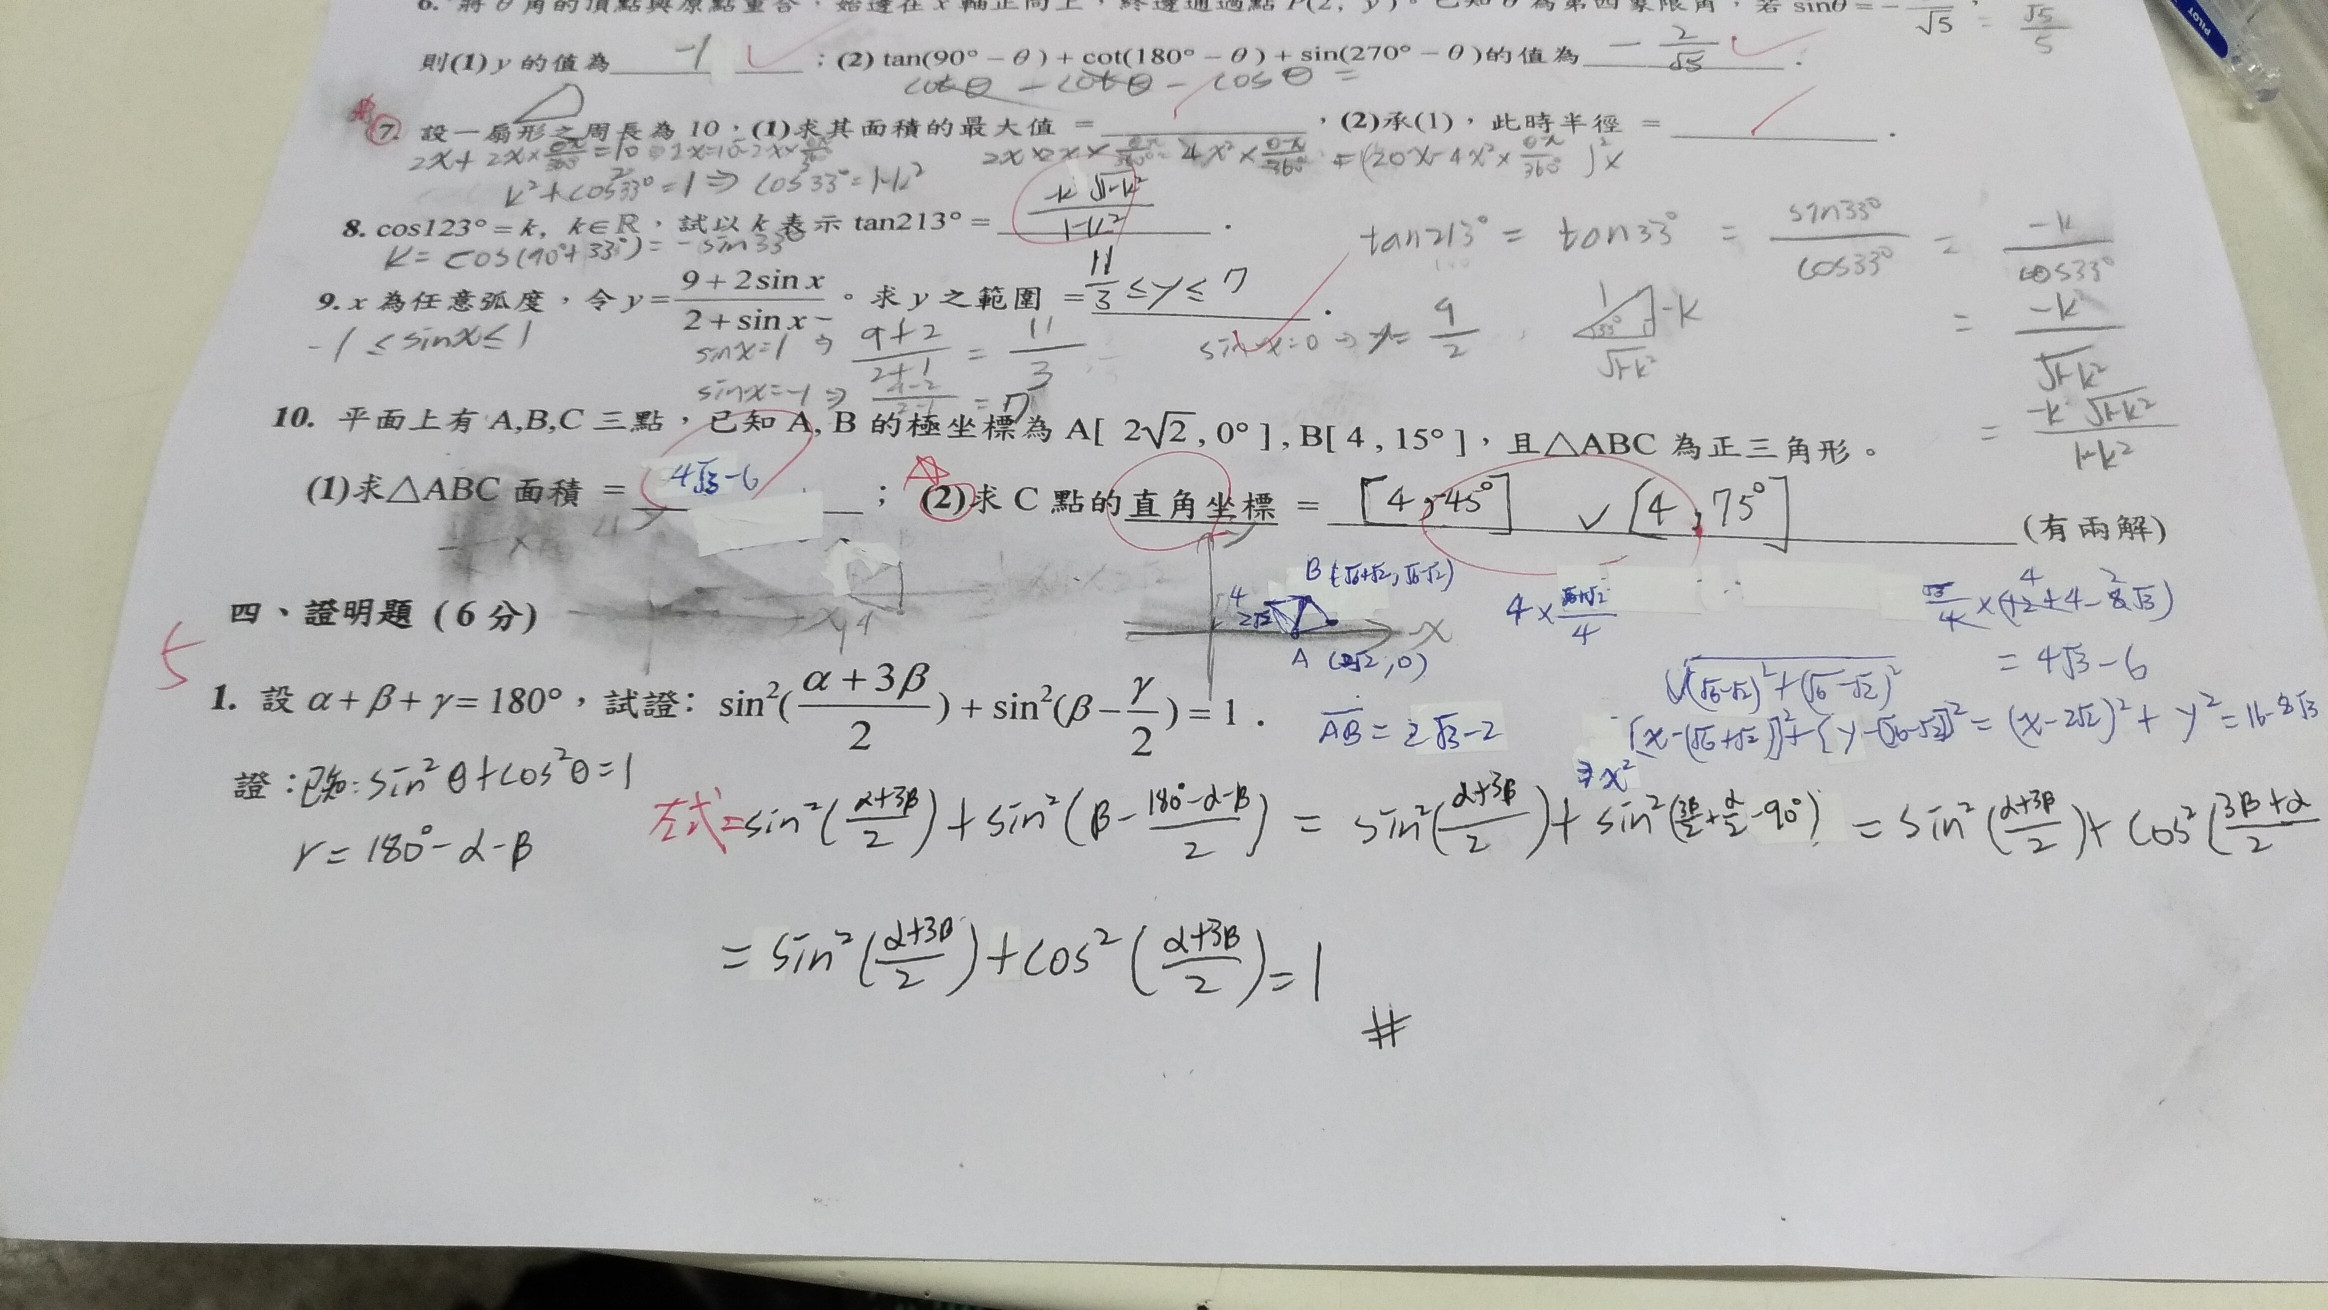 6. 將 θ 角的頂點與原點重合，始邊在 x 軸正向上，終邊通過點 P(2, y)。已知 θ 為第四象限角，若 sinθ = − /√5，
= √5/5
則(1) y 的值為 -1 ；(2) tan(90° − θ) + cot(180° − θ) + sin(270° − θ)的值為 - 2/√5 .
cotθ - cotθ - cosθ =
7. 設一扇形之周長為 10，(1)求其面積的最大值 = ，(2)承(1)，此時半徑 = .
k²+cos²33°=1 ⇒ cos²33°=1-k²
8. cos123° = k, k∈ℝ，試以 k 表示 tan213° = -k√1-k² / 1-k² .
k = cos(90°+33°) = -sin33°
tan213° = tan33° = sin33°/cos33° = -k/cos33°
= -k/√1-k²
= -k√1-k² / 1-k²
1 -k 33° √1-k²
9. x 為任意弧度，令 y = (9 + 2sin x)/(2 + sin x)。求 y 之範圍 = 11/3 ≤ y ≤ 7 .
-1 ≤ sinx ≤ 1
sinx=1 ⇒ 9+2/2+1 = 11/3
sinx=0 ⇒ y= 9/2
sinx=-1 ⇒ 9-2/2-1 = 7
10. 平面上有 A,B,C 三點，已知 A, B 的極坐標為 A[ 2√2 , 0° ] , B[ 4 , 15° ]，且△ABC 為正三角形。
(1)求△ABC 面積 = 4√3-6 ；(2)求 C 點的直角坐標 = [4,-45°] ✓ [4,75°] (有兩解)
B (√6+√2, √6-√2)
4 2√2
A (2√2,0)
x
4 × √6+√2/4
= 4√3-6
√(√6-√2)²+(√6-√2)²
AB = 2√3-2
[x-(√6+√2)]²+[y-(√6-√2)]² = (x-2√2)²+y² = 16-8√3
⇒ x²
四、證明題 ( 6 分)
5
1. 設 α + β + γ = 180°，試證: sin²((α + 3β)/2) + sin²(β − γ/2) = 1 .
證：已知: sin²θ+cos²θ=1
γ = 180°-α-β
左式=sin²(α+3β/2)+sin²(β-180°-α-β/2) = sin²(α+3β/2)+sin²(3β/2+α/2-90°) = sin²(α+3β/2)+cos²(3β+α/2
= sin²(α+3β/2)+cos²(α+3β/2)=1
#
PILOT